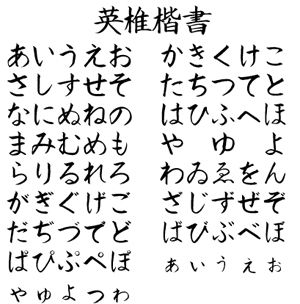 英椎楷書
あいうえお かきくけこ
さしすせそ たちつてと
なにぬねの はひふへほ
まみむめも や ゆ よ
らりるれろ わゐゑをん
がぎぐげご ざじずぜぞ
だぢづでど ばびぶべぼ
ぱぴぷぺぽ ぁぃぅぇぉ
ゃゅょっゎ